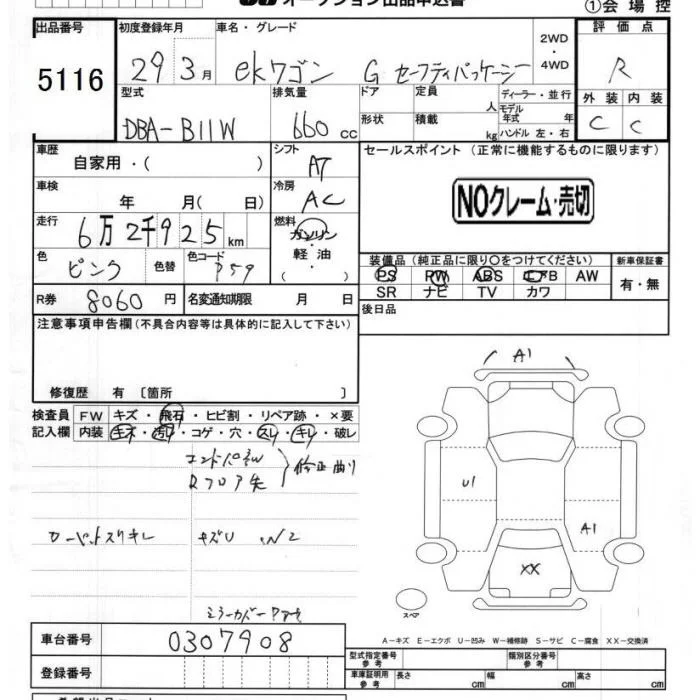 オークション出品申込書
①会場控
出品番号
5116
初度登録年月
29 3月
車名・グレード
ekワゴン G セーフティパッケージ
2WD・4WD
評価点
R
外装 内装
C C
型式
DBA-B11W
排気量
660cc
ドア
形状
定員 人
積載 kg
ディーラー・並行
モデル年式 年
ハンドル 左・右
車歴
自家用・( )
シフト
AT
セールスポイント(正常に機能するものに限ります)
NOクレーム・売切
車検
年 月( 日)
冷房
AC
走行
6万2千925km
燃料
ガソリン・軽油・( )
色
ピンク
色替
色コード
P59
装備品(純正品に限り〇をつけてください)
PS PW ABS エアB AW
SR ナビ TV カワ
新車保証書
有・無
R券 8060円
名変通知期限 月 日
後日品
注意事項申告欄(不具合内容等は具体的に記入して下さい)
修復歴 有〔箇所 〕
検査員記入欄
FW キズ・飛石・ヒビ割・リペア跡・×要
内装 キズ・汚れ・コゲ・穴・スレ・キレ・破レ
エンドパネル
Rフロア先
修正曲り
キズU
A1
U1
A1
XX
スペア
A-キズ E-エクボ U-凹み W-補修跡 S-サビ C-腐食 XX-交換済
車台番号
0307908
登録番号
型式指定番号 参考
類別区分番号 参考
車庫証明用 参考
長さ cm
幅 cm
高さ cm